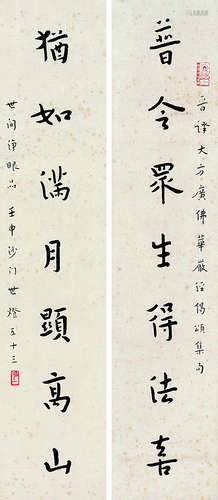 晉譯大方廣佛華嚴經偈頌集句
普令眾生得法喜
猶如滿月顯高山
世間淨眼品 壬申沙門世燈五十三